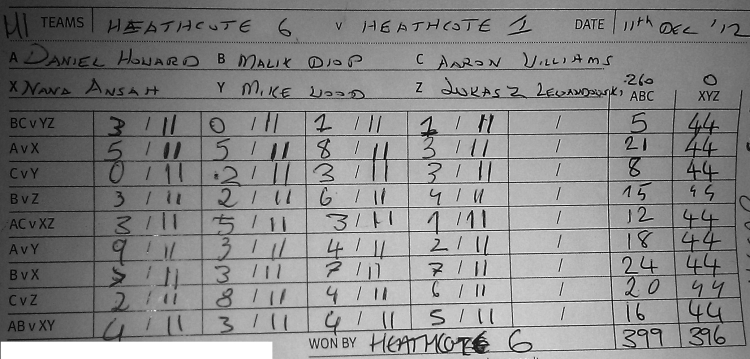 M1 TEAMS HEATHCOTE 6 V HEATHCOTE 1 DATE 11th DEC '12
A DANIEL HOWARD B MALIK DIOP C AARON WILLIAMS
X NANA ANSAH Y MIKE WOOD Z LUKASZ LEWANDOWSKI 260 ABC 0 XYZ
BC v YZ 3 / 11 0 / 11 1 / 11 1 / 11 / 5 44
A v X 5 / 11 5 / 11 8 / 11 3 / 11 / 21 44
C v Y 0 / 11 2 / 11 3 / 11 3 / 11 / 8 44
B v Z 3 / 11 2 / 11 6 / 11 4 / 11 / 15 44
AC v XZ 3 / 11 5 / 11 3 / 11 1 / 11 / 12 44
A v Y 9 / 11 3 / 11 4 / 11 2 / 11 / 18 44
B v X / 11 3 / 11 7 / 11 7 / 11 / 24 44
C v Z 2 / 11 8 / 11 4 / 11 6 / 11 / 20 44
AB v XY 4 / 11 3 / 11 4 / 11 5 / 11 / 16 44
WON BY HEATHCOTE 6 399 396